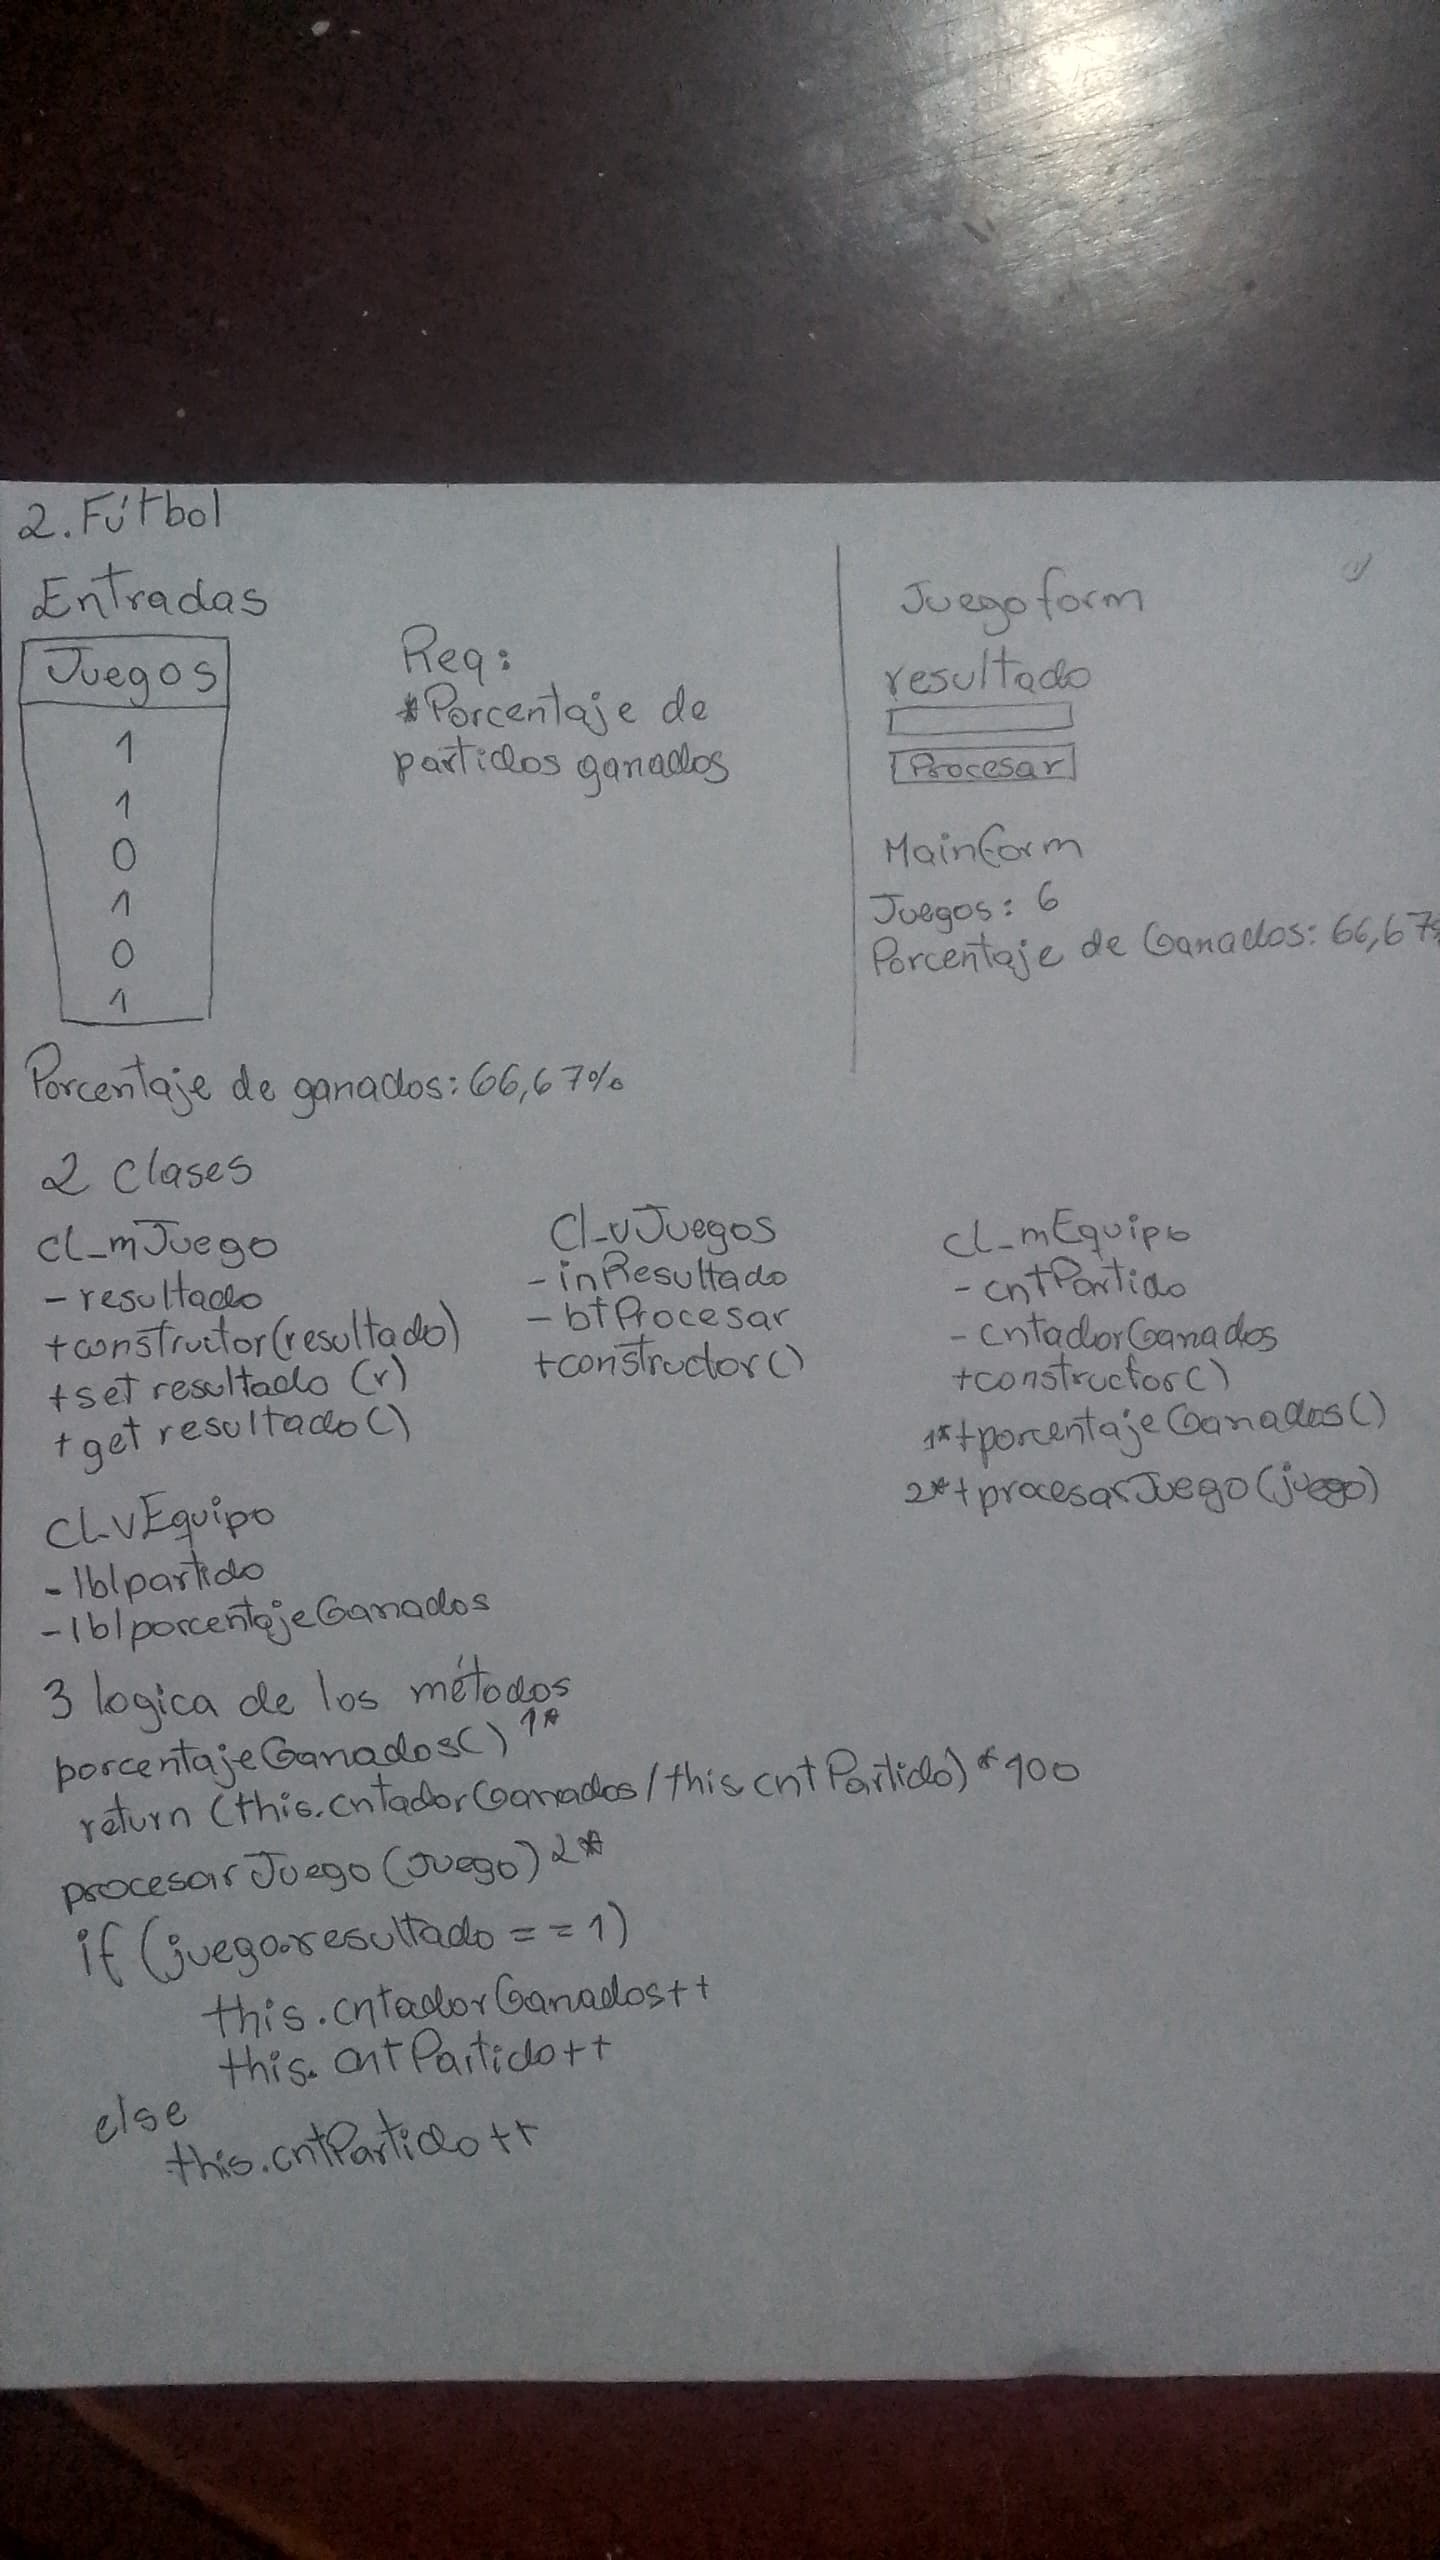 2. Fútbol
Entradas
Juegos
1
1
0
1
0
1
Req:
*Porcentaje de
partidos ganados
Juegoform
resultado
Procesar
Mainform
Juegos: 6
Porcentaje de Ganados: 66,67%
Porcentaje de ganados: 66,67%
2 clases
cl_mJuego
- resultado
+constructor(resultado)
+set resultado (r)
+get resultado()
Cl_vJuegos
-inResultado
-btProcesar
+constructor()
cl_mEquipo
- cntPartido
- cntadorGanados
+constructor()
1*+porcentajeGanados()
2*+procesarJuego(juego)
Cl_vEquipo
-lblpartido
-lblporcentajeGanados
3 logica de los métodos
porcentajeGanados() 1*
return (this.cntadorGanados/this.cntPartido)*100
procesarJuego(Juego) 2*
if (juego.resultado == 1)
this.cntadorGanados++
this.cntPartido++
else
this.cntPartido++